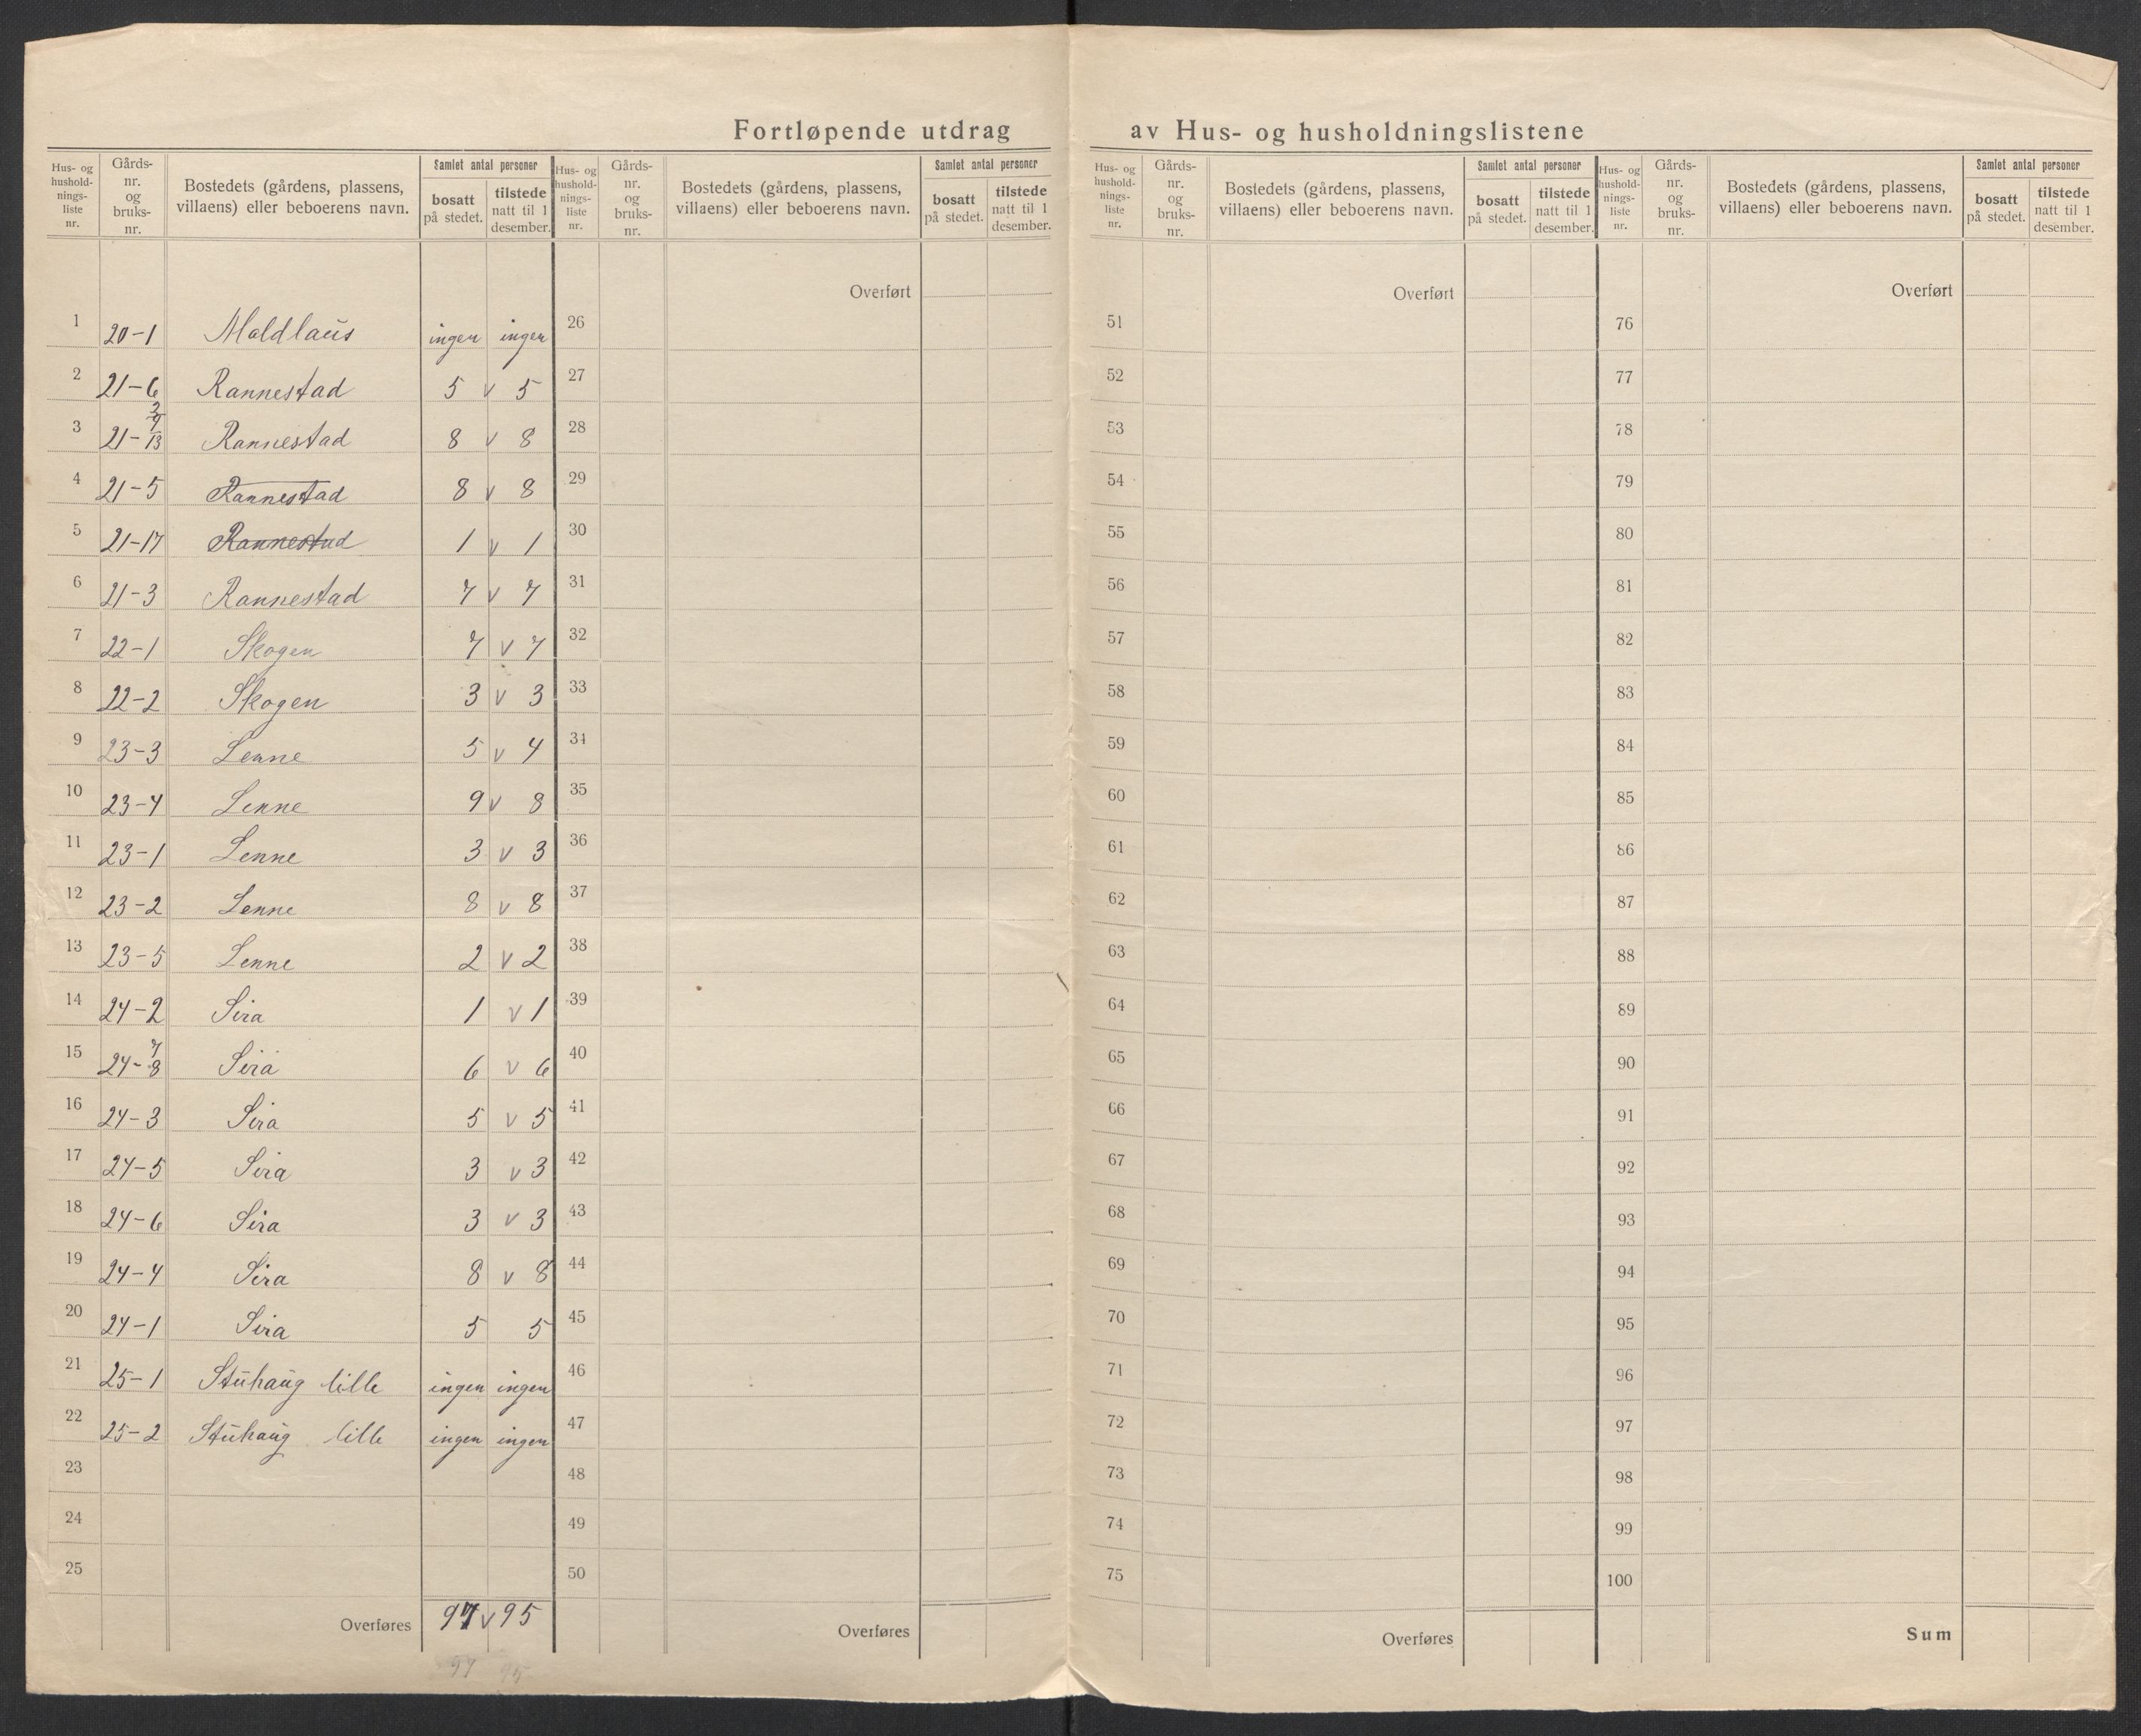 Fortløpende utdrag av Hus- og husholdningslistene
Hus- og hushold-nings-liste nr. Gårds-nr. og bruks-nr. Bostedets (gårdens, plassens, villaens) eller beboerens navn. Samlet antal personer bosatt på stedet. tilstede natt til 1 desember.
Hus- og hushold-nings-liste nr. Gårds-nr. og bruks-nr. Bostedets (gårdens, plassens, villaens) eller beboerens navn. Samlet antal personer bosatt på stedet. tilstede natt til 1 desember.
Hus- og hushold-nings-liste nr. Gårds-nr. og bruks-nr. Bostedets (gårdens, plassens, villaens) eller beboerens navn. Samlet antal personer bosatt på stedet. tilstede natt til 1 desember.
Hus- og hushold-nings-liste nr. Gårds-nr. og bruks-nr. Bostedets (gårdens, plassens, villaens) eller beboerens navn. Samlet antal personer bosatt på stedet. tilstede natt til 1 desember.
Overført Overført Overført
1 20-1 Moldlaus ingen ingen 26 51 76
2 21-6 Rannestad 5 v 5 27 52 77
3 21- 13 Rannestad 8 v 8 28 53 78
4 21-5 Rannestad 8 v 8 29 54 79
5 21-17 Rannestad 1 v 1 30 55 80
6 21-3 Rannestad 7 v 7 31 56 81
7 22-1 Skogen 7 v 7 32 57 82
8 22-2 Skogen 3 v 3 33 58 83
9 23-3 Lenne 5 v 4 34 59 84
10 23-4 Lenne 9 v 8 35 60 85
11 23-1 Lenne 3 v 3 36 61 86
12 23-2 Lenne 8 v 8 37 62 87
13 23-5 Lenne 2 v 2 38 63 88
14 24-2 Sira 1 v 1 39 64 89
15 24- 7 8 Sira 6 v 6 40 65 90
16 24-3 Sira 5 v 5 41 66 91
17 24-5 Sira 3 v 3 42 67 92
18 24-6 Sira 3 v 3 43 68 93
19 24-4 Sira 8 v 8 44 69 94
20 24-1 Sira 5 5 45 70 95
21 25-1 Stuhaug lille ingen ingen 46 71 96
22 25-2 Stuhaug lille ingen ingen 47 72 97
23 48 73 98
24 49 74 99
25 50 75 100
Overføres 97 v 95 Overføres Overføres Sum
97 95